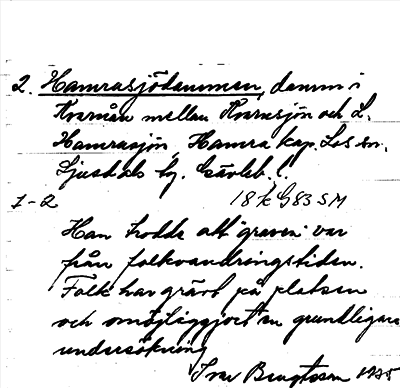 2. Hamrasjödammen, damm i
Kvarnån mellan Kvarnsjön och L.
Hamrasjön, Hamra kap. Los sn.
Ljusdals tg. Gävleb. l.
1-2 18 k G83 SM
Han trodde att "graven" var
från folkvandringstiden.
Folk har grävt på platsen
och omöjliggjort en grundligare
undersökning
Ivar Bengtsson 1935